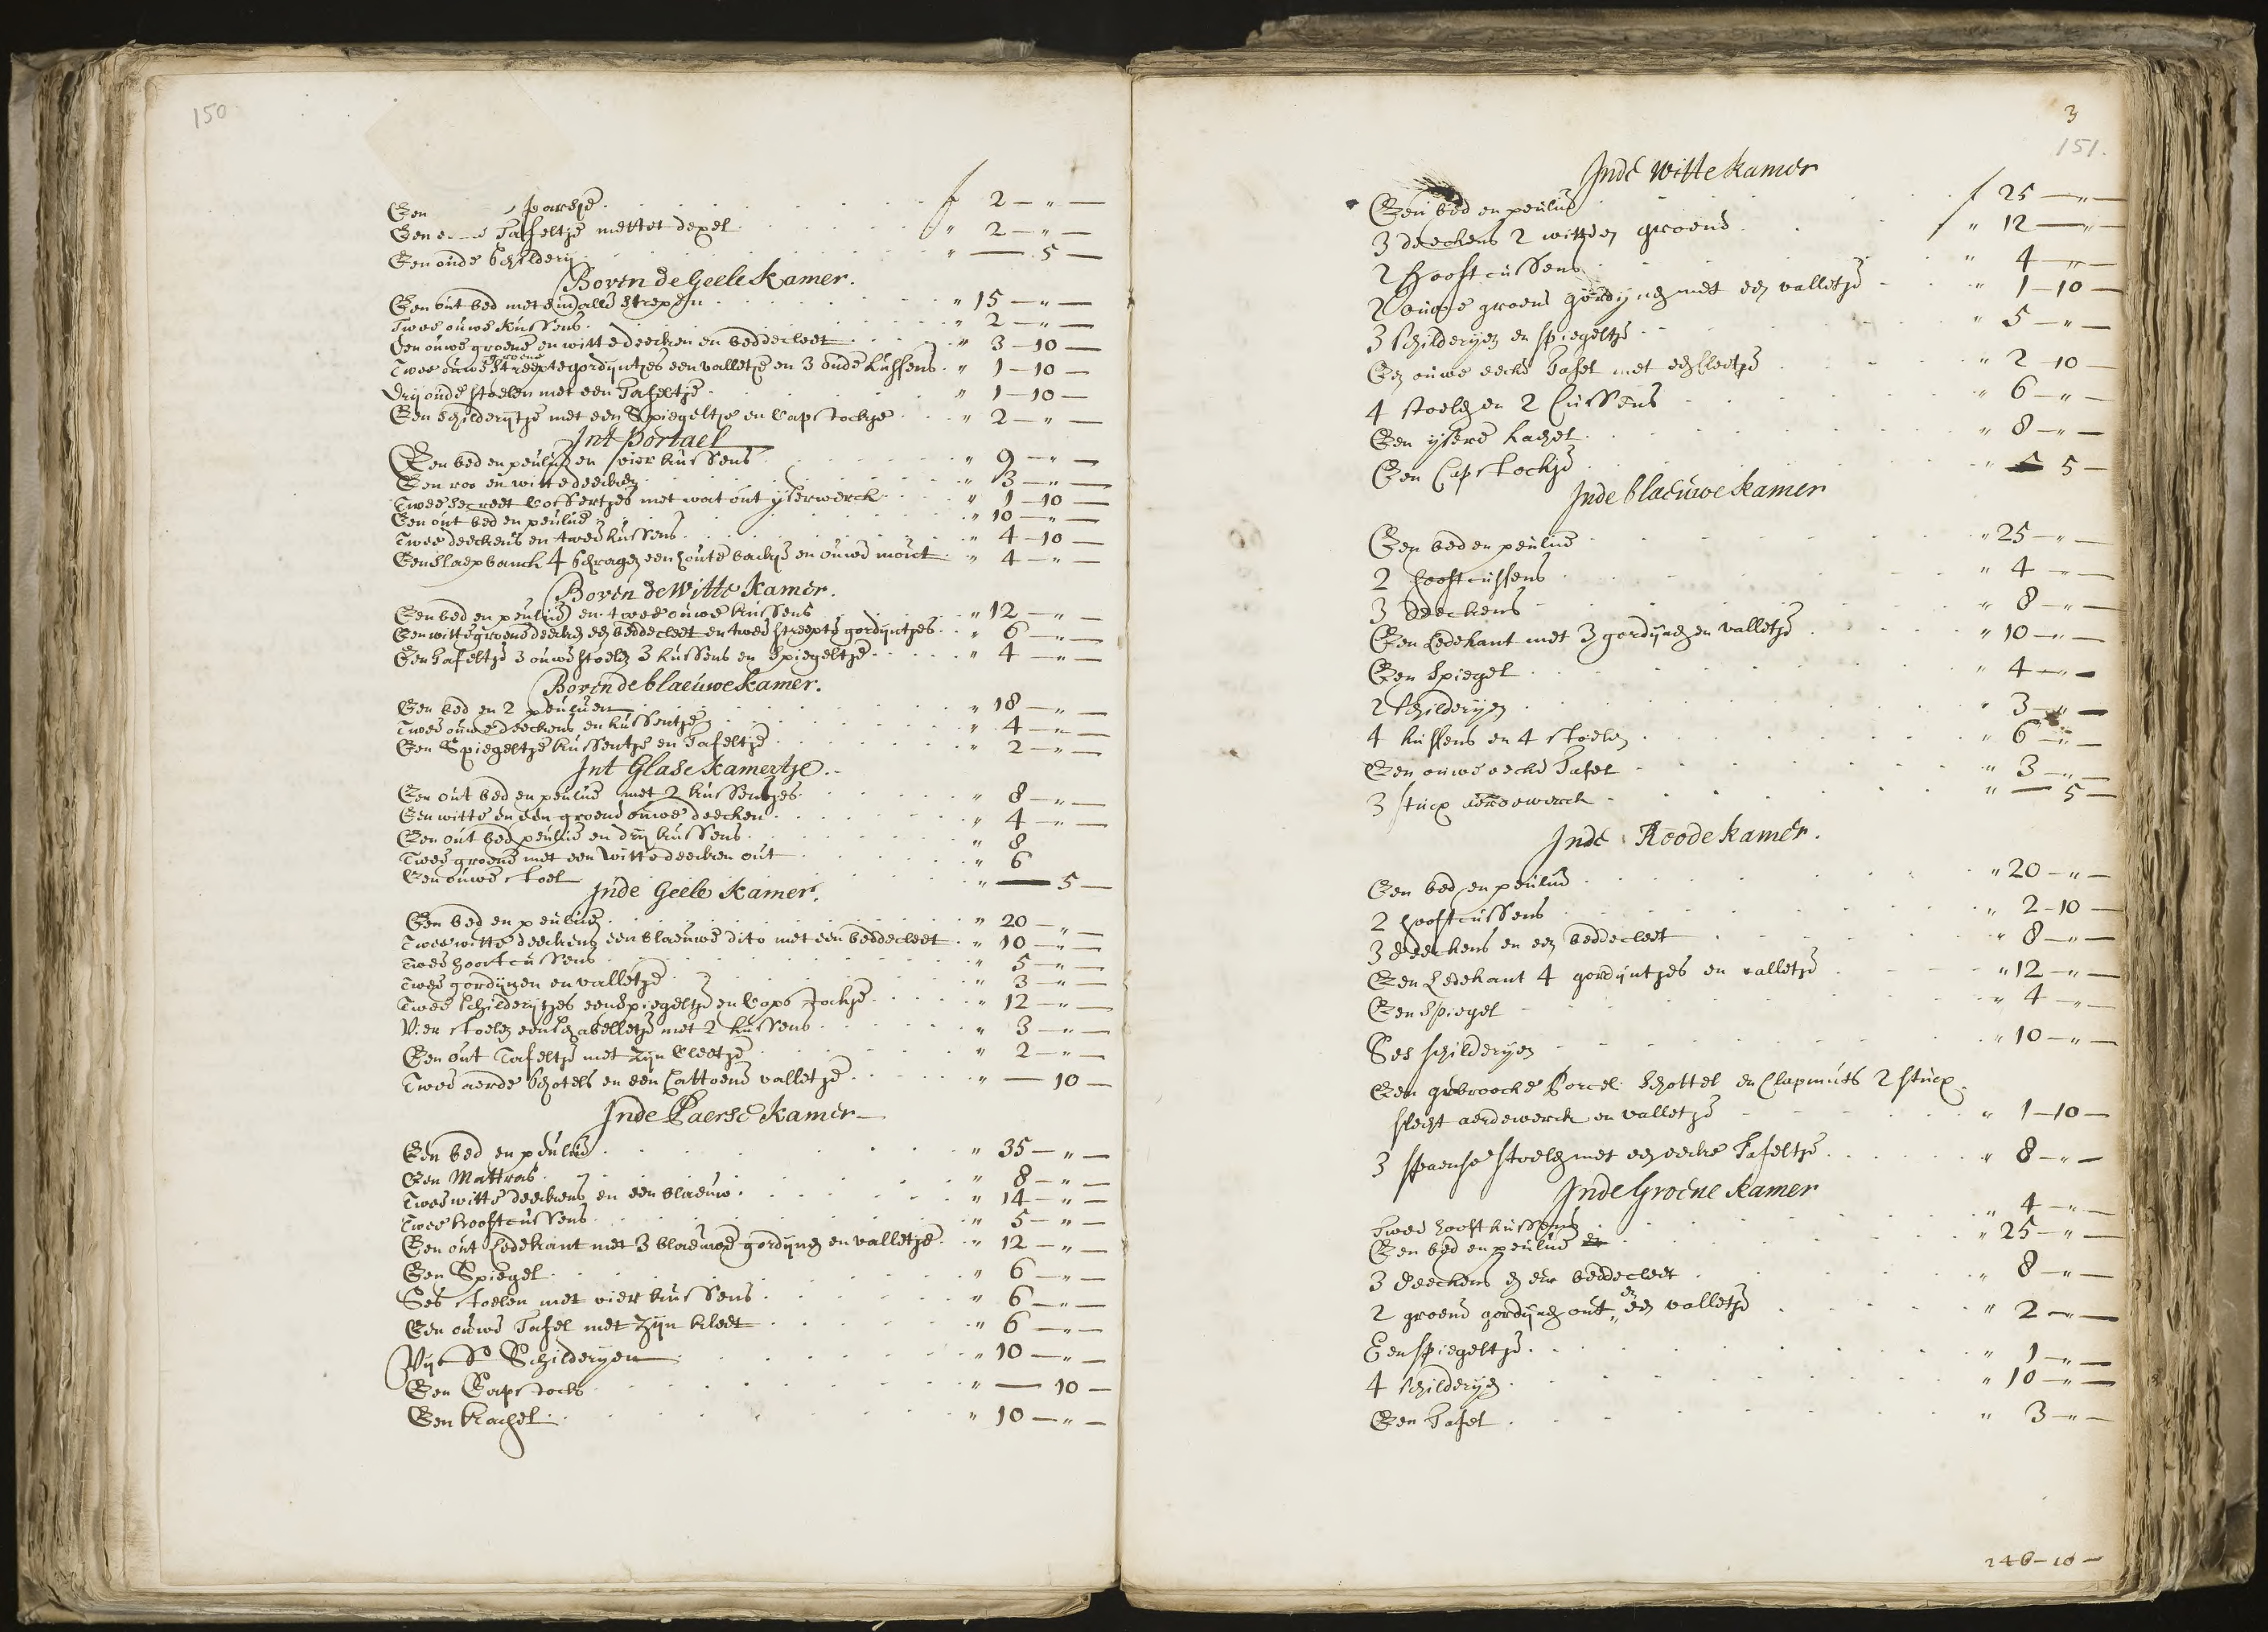 150
Een parsje f 2 — " —
Een Tafeltje mettet dexel " 2 — " —
Een oude Schilderij " — 5 —
Boven de Geele Kamer.
Een out bed met smalle strepen " 15 — " —
Twee ouwe kussens " 2 — " —
Een ouwe groene en witte deecken en beddecleet " 3 — 10 —
groene
Twee ouwe streepte gordijntjes een valletje en 3 oude kussens " 1 — 10 —
Drij oude stoelen met een Tafeltje " 1 — 10 —
Een Schilderijtje met een Spiegeltje en Capstockje " 2 — " —
Int Portael
Een bed en peuluw en vier kussens " 9 — " —
Een roo en witte deecken " 3 — " —
Twee secreet Coffertjes met wat out ijserwerck " 1 — 10 —
Een out bed en peulue " 10 — " —
Twee deeckens en twee kussens " 4 — 10 —
Een slaepbanck 4 Schragen een houte backje en ouwe mout " 4 — " —
Boven de Witte Kamer.
Een bed en peuluw en twee ouwe kussens " 12 — " —
Een witte groene deecken een beddecleet en twee streepte gordijntjes " 6 — " —
Een Tafeltje 3 ouwe stoelen 3 kussens en Spiegeltje " 4 — " —
Boven de blaeuwe Kamer.
Een bed en 2 peuluen " 18 — " —
Twee ouwe deeckens en kussentjen " 4 — " —
Een Spiegeltje kussentje en Tafeltje " 2 — " —
Int Glase Kamertje.
Een out bed en peulue met 2 kussentjes " 8 — " —
Een witte en een groene ouwe deecken " 4 — " —
Een out bed peulue en drij kussens " 8
Twee groene met een witte deecken out " 6
Een ouwe stoel " — 5 —
Inde Geele Kamer.
Een bed en peulue " 20 — " —
Twee witte deeckens een blaeuwe dito met een beddecleet " 10 — " —
Twee hooftcussens " 5 — " —
Twee gordijnen en valletje " 3 — " —
Twee schilderijtjes een Spiegeltje en Capstockje " 12 — " —
Vier stoelen een Schabelletje met 2 kussens " 3 — " —
Een out Tafeltje met zijn Cleetje " 2 — " —
Twee aerde schotels en een Cattoene valletje " — 10 —
Inde Paerse Kamer
Een bed en peulue " 35 — " —
Een Mattras " 8 — " —
Twee witte deeckens en een blaeuw " 14 — " —
Twee hooftcussens " 5 — " —
Een out Ledekant met 3 blaeuwe gordijnen en valletje " 12 — " —
Een Spiegel " 6 — " —
Ses stoelen met vier kussens " 6 — " —
Een ouwe Tafel met zijn kleet " 6 — " —
Vijf Schilderijen " 10 — " —
Een Capstock " — 10 —
Een kachel " 10 — " —
3
151.
Inde witte kamer
Een bed en peulue f 25 — " —
3 deeckens 2 witte en groene " 12 — " —
2 hooftcussens " 4 — " —
2 ouwe groene gordijnen met een valletje " 1 — 10 —
3 Schilderijen en spiegeltje " 5 — " —
Een ouwe eecke Tafel met een Cleetje " 2 — 10 —
4 stoelen en 2 Cussens " 6 — " —
Een ijsere kachel " 8 — " —
Een Capstockje " — 5 —
Inde blaeuwe Kamer
Een bed en peulue " 25 — " —
2 hooftcussens " 4 — " —
3 deeckens " 8 — " —
Een Ledekant met 3 gordijnen en valletje " 10 — " —
Een Spiegel " 4 — " —
2 Schilderijen " 3 — " —
4 kussens en 4 stoelen " 6 — " —
Een ouwe eecke Tafel " 3 — " —
3 stucx aerdewerck " — 5 —
Inde Roode kamer.
Een bed en peulue " 20 — " —
2 hooftcussens " 2 — 10 —
3 deeckens en een beddecleet " 8 — " —
Een Ledekant 4 gordijntjes en valletje " 12 — " —
Een Spiegel " 4 — " —
Ses schilderijen " 10 — " —
Een gebroocke Porcel. Schottel en Clapmuts 2 stucx
slecht aerdewerck en valletje " 1 — 10 —
3 spaense stoelen met een eecke Tafeltje " 8 — " —
Inde Groene Kamer
Twee hooftkussens " 4 — " —
Een bed en peulue " 25 — " —
3 deeckens en een beddecleet " 8 — " —
en
2 groene gordijnen out een valletje " 2 — " —
Een spiegeltje " 1 — " —
4 schilderijen " 10 — " —
Een Tafel " 3 — " —
246 — 10 —